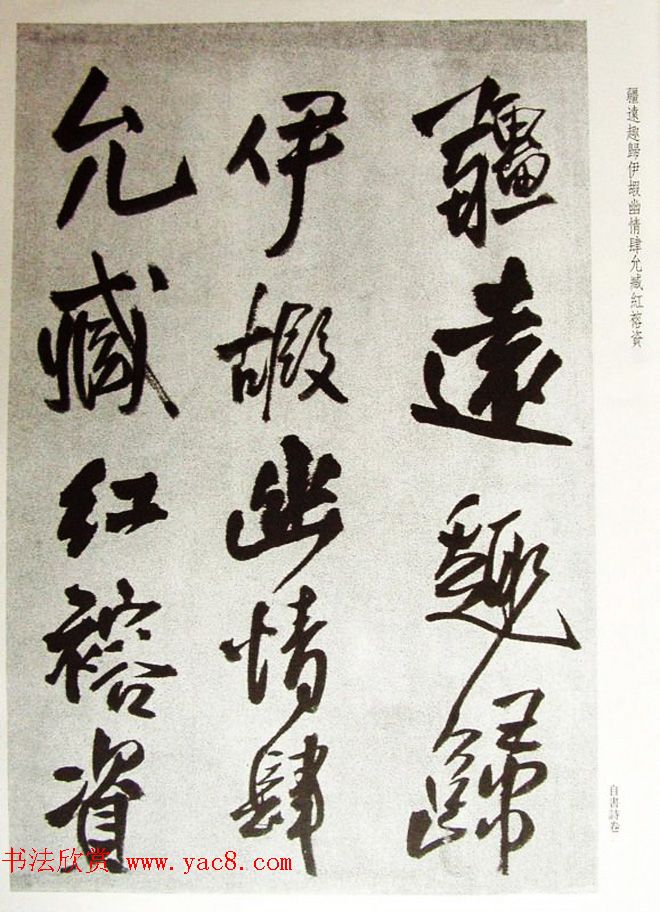 疆遠趣歸伊嘏幽情肆允臧紅褣資
疆遠趣歸
伊嘏幽情肆
允臧紅褣資
自書詩卷
书法欣赏 www.yac8.com